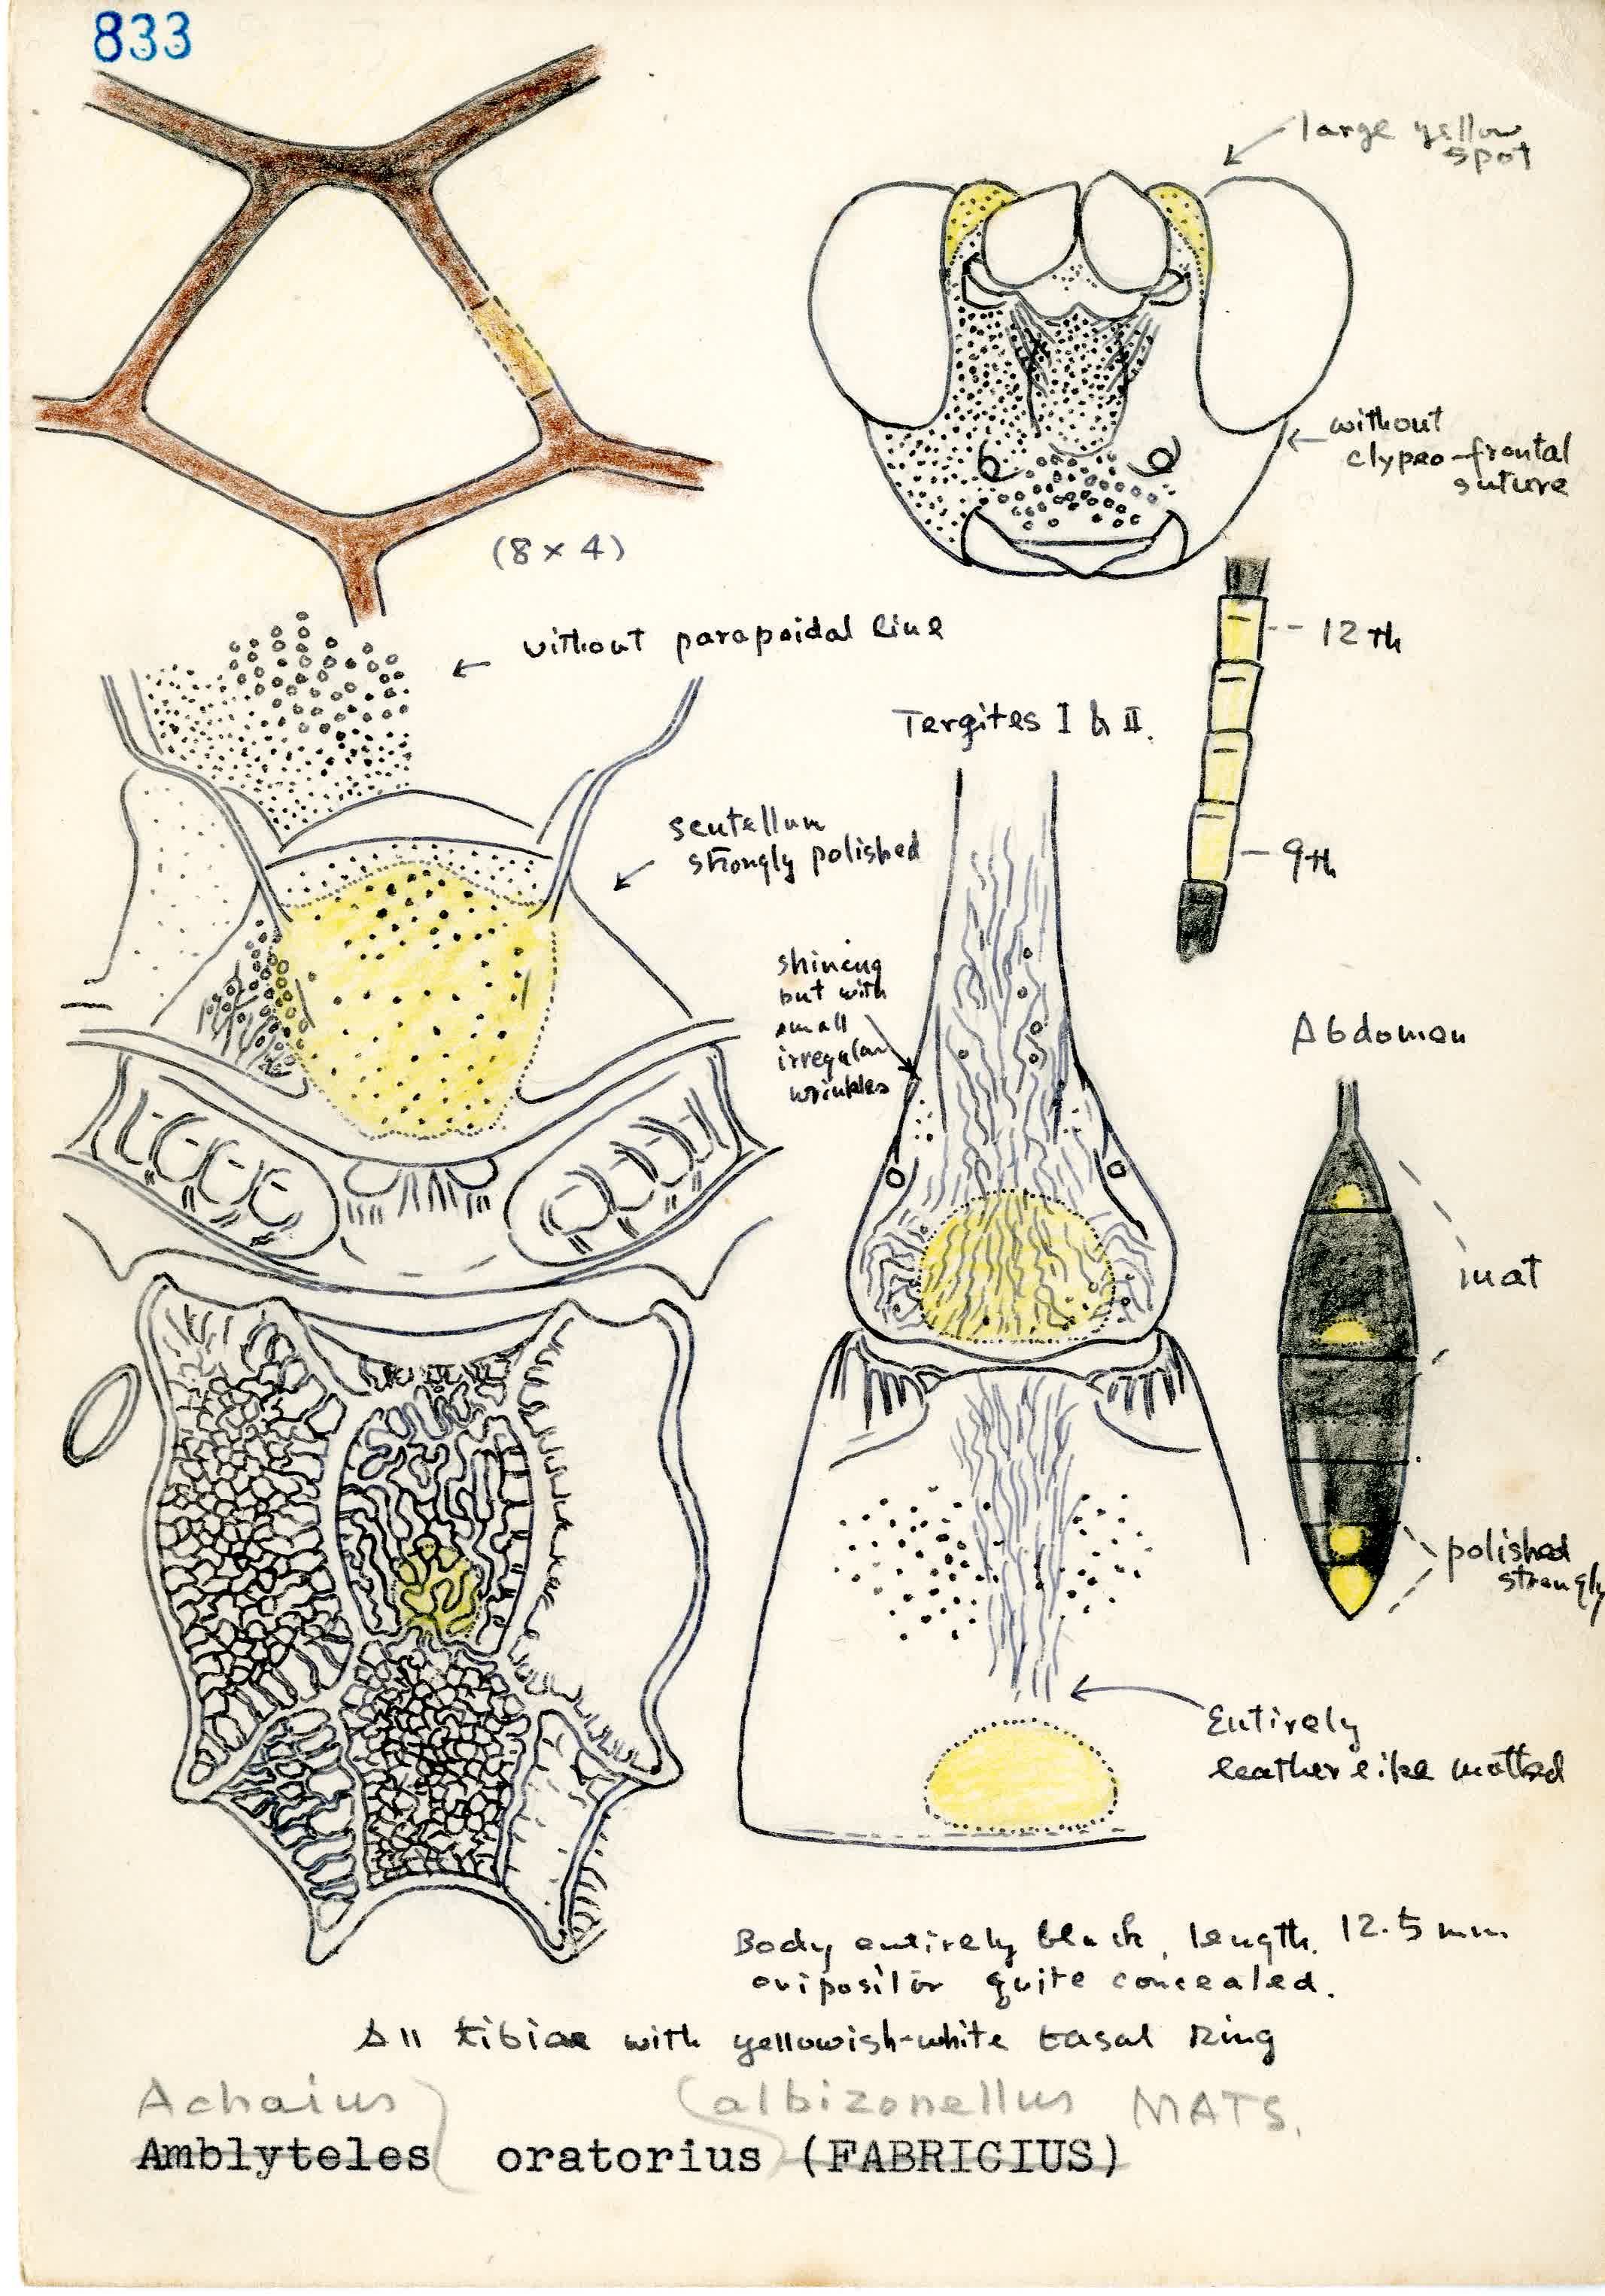 833
large yellow
spot
without
clypeo-frontal
suture
(8 × 4)
without parapsidal line
12 th
Tergites I & II.
scutellum
strongly polished
9 th
shining
but with
small
irregular
wrinkles
Abdomen
mat
polished
strongly
Entirely
leather like matted
Body entirely black, length. 12.5 mm
ovipositor quite concealed.
All tibiae with yellowish-white basal ring
Achaius (albizonellus MATS.
Amblyteles oratorius (FABRICIUS)